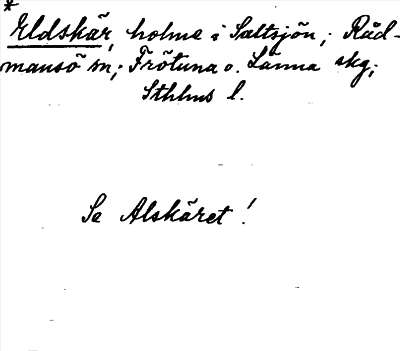 *
Eldskär, holme i Saltsjön; Råd-
mansö sn; Frötuna o. Länna skg;
Sthlms l.
Se Alskäret!